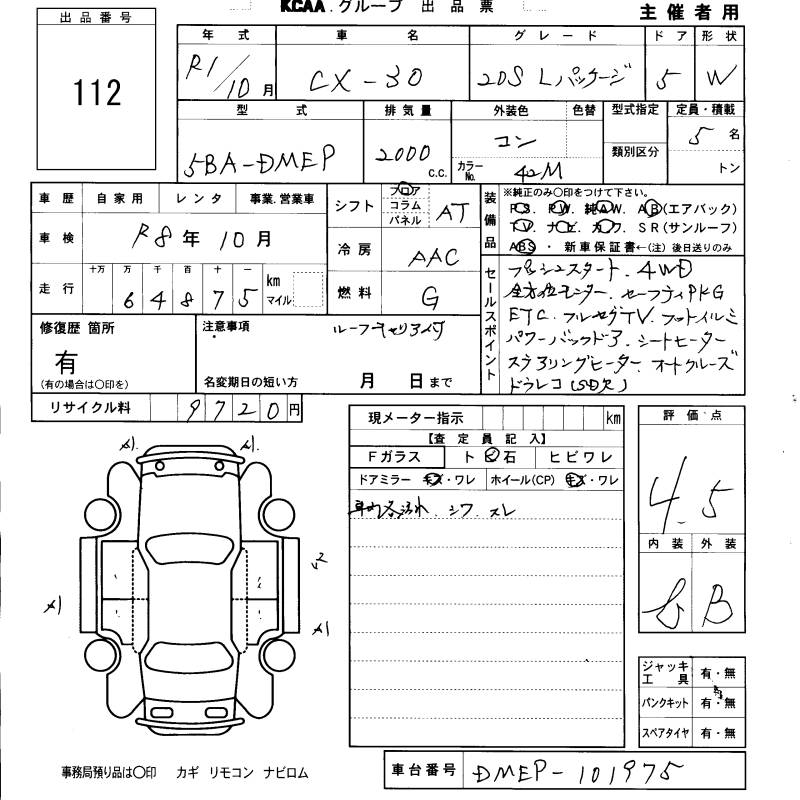 KCAA.グループ 出品票
主催者用
出品番号
112
年式 車名 グレード ドア 形状
R1/10月 CX-30 20S Lパッケージ 5 W
型式 排気量 外装色 色替 型式指定 定員・積載
5BA-DMEP 2000 c.c. コン カラーNo. 42M 類別区分 5名 トン
車歴 自家用 レンタ 事業.営業車
車検 R8年10月
走行 十万 万 千 百 十 一 km マイル
6 4 8 7 5
シフト フロア コラム パネル AT
冷房 AAC
燃料 G
装備品 ※純正のみ〇印をつけて下さい。
P.S. P.W. 純A.W. A.B(エアバック)
T.V. ナビ. カワ. SR(サンルーフ)
ABS・新車保証書←(注)後日送りのみ
セールスポイント
プッシュスタート. 4WD
全方位モニター. セーフティPKG
ETC. フルセグTV. フットイルミ
パワーバックドア. シートヒーター
ステアリングヒーター. オートクルーズ
ドラレコ(SD欠)
修復歴 箇所
有
(有の場合は〇印を)
注意事項 ルーフキャリア付
名変期日の短い方 月 日まで
リサイクル料 9720円
現メーター指示 km
【査定員記入】
Fガラス トビ石 ヒビワレ
ドアミラー キズ・ワレ ホイール(CP) キズ・ワレ
車内各汚れ. シワ. スレ
評価点
4.5
内装 外装
B
A1 A1
A1 A1
ジャッキ工具 有・無
パンクキット 有・無
スペアタイヤ 有・無
事務局預り品は〇印 カギ リモコン ナビロム
車台番号 DMEP-101975